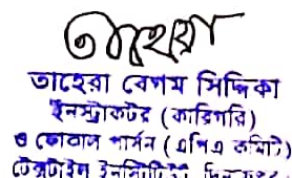 তাহেরা
তাহেরা বেগম সিদ্দিকা
ইনস্ট্রাকটর (কারিগরি)
ও ফোকাল পার্সন (এপিএ কমিটি)
টেক্সটাইল ইনস্টিটিউট